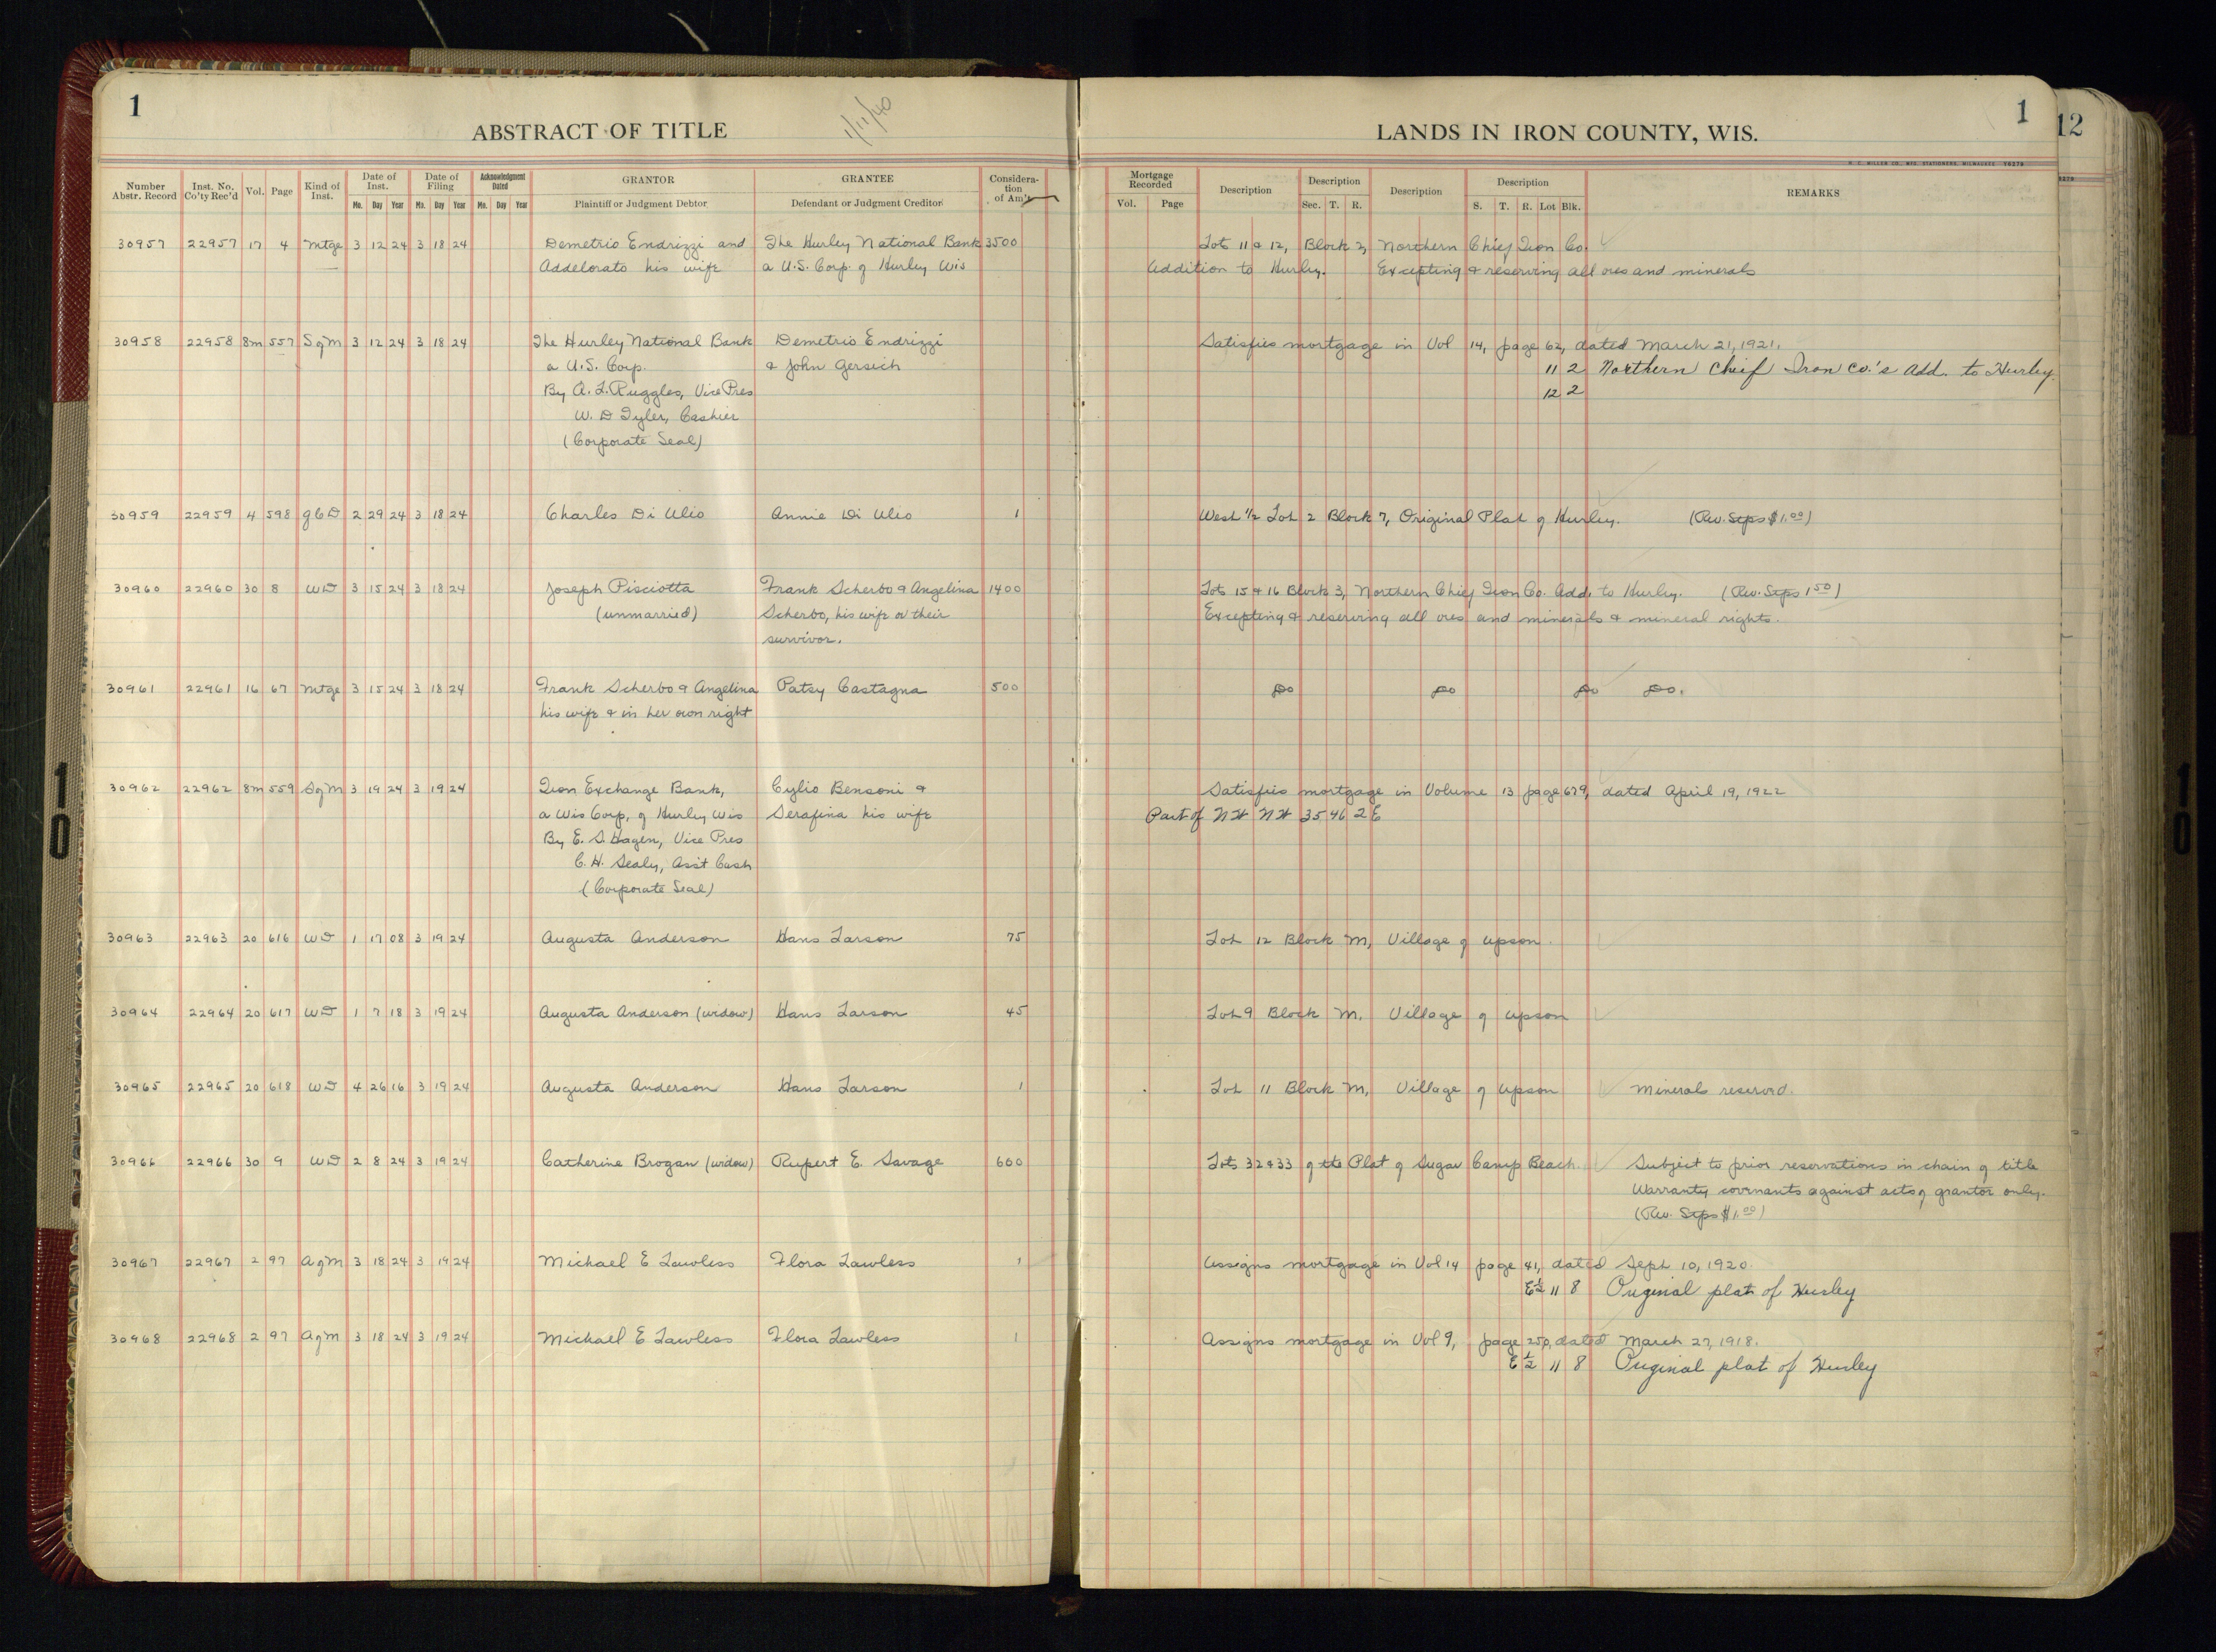 1
ABSTRACT OF TITLE
1/11/40
LANDS IN IRON COUNTY, WIS.
1
12
Number Abstr. Record Inst. No. Co'ty Rec'd Vol. Page Kind of Inst. Date of Inst. Mo. Day Year Date of Filing Mo. Day Year Acknowledgment Dated Mo. Day Year GRANTOR Plaintiff or Judgment Debtor GRANTEE Defendant or Judgment Creditor Consideration of Am't
Mortgage Recorded Vol. Page Description Description Sec. T. R. Description Description S. T. R. Lot Blk. REMARKS
30957 22957 17 4 Mtge 3 12 24 3 18 24 Demetrio Endrizzi and The Hurley National Bank 3500 Lots 11 & 12, Block 2, Northern Chief Iron Co.
Addelorato his wife a U.S. Corp. of Hurley Wis Addition to Hurley. Excepting & reserving all ores and minerals
30958 22958 8m 557 S of M 3 12 24 3 18 24 The Hurley National Bank Demetrio Endrizzi Satisfies mortgage in Vol 14, page 62, dated March 21, 1921.
a U.S. Corp. & John Gersich 11 2 Northern Chief Iron Co.'s Add. to Hurley.
By A. L. Ruggles, Vice Pres 12 2
W. D Tyler, Cashier
(Corporate Seal)
30959 22959 4 598 QCD 2 29 24 3 18 24 Charles Di Ulio Annie Di Ulio 1 West 1/2 Lot 2 Block 7, Original Plat of Hurley. (Rev. Stps $1.00)
30960 22960 30 8 WD 3 15 24 3 18 24 Joseph Pisciotta Frank Scherbo & Angelina 1400 Lots 15 & 16 Block 3, Northern Chief Iron Co. Add. to Hurley. (Rev. Stps 1.50)
(unmarried) Scherbo, his wife or their Excepting & reserving all ores and minerals & mineral rights.
survivor.
30961 22961 16 67 Mtge 3 15 24 3 18 24 Frank Scherbo & Angelina Patsy Castagna 500 Do Do Do Do.
his wife & in her own right
30962 22962 8m 559 S of M 3 19 24 3 19 24 Iron Exchange Bank, Cylio Bensoni & Satisfies mortgage in Volume 13 page 679, dated April 19, 1922
a Wis Corp, of Hurley Wis Serafina his wife Part of NW NW 35 46 2E
By E. S. Hagen, Vice Pres
C. H. Sealy, Ass't Cash
(Corporate Seal)
30963 22963 20 616 WD 1 17 08 3 19 24 Augusta Anderson Hans Larson 75 Lot 12 Block M, Village of Upson.
30964 22964 20 617 WD 1 7 18 3 19 24 Augusta Anderson (widow) Hans Larson 45 Lot 9 Block M. Village of Upson
30965 22965 20 618 WD 4 26 16 3 19 24 Augusta Anderson Hans Larson 1 Lot 11 Block M, Village of Upson Minerals reserved.
30966 22966 30 9 WD 2 8 24 3 19 24 Catherine Brogan (widow) Rupert E. Savage 600 Lots 32 & 33 of the Plat of Sugar Camp Beach. Subject to prior reservations in chain of title
Warranty covenants against acts of grantor only.
(Rev. Stps $1.00)
30967 22967 2 97 A of M 3 18 24 3 19 24 Michael E Lawless Flora Lawless 1 Assigns mortgage in Vol 14 page 41, dated Sept 10, 1920.
E½ 11 8 Original plat of Hurley
30968 22968 2 97 A of M 3 18 24 3 19 24 Michael E Lawless Flora Lawless 1 Assigns mortgage in Vol 9, page 250, dated March 27, 1918.
E½ 11 8 Original plat of Hurley
10
10